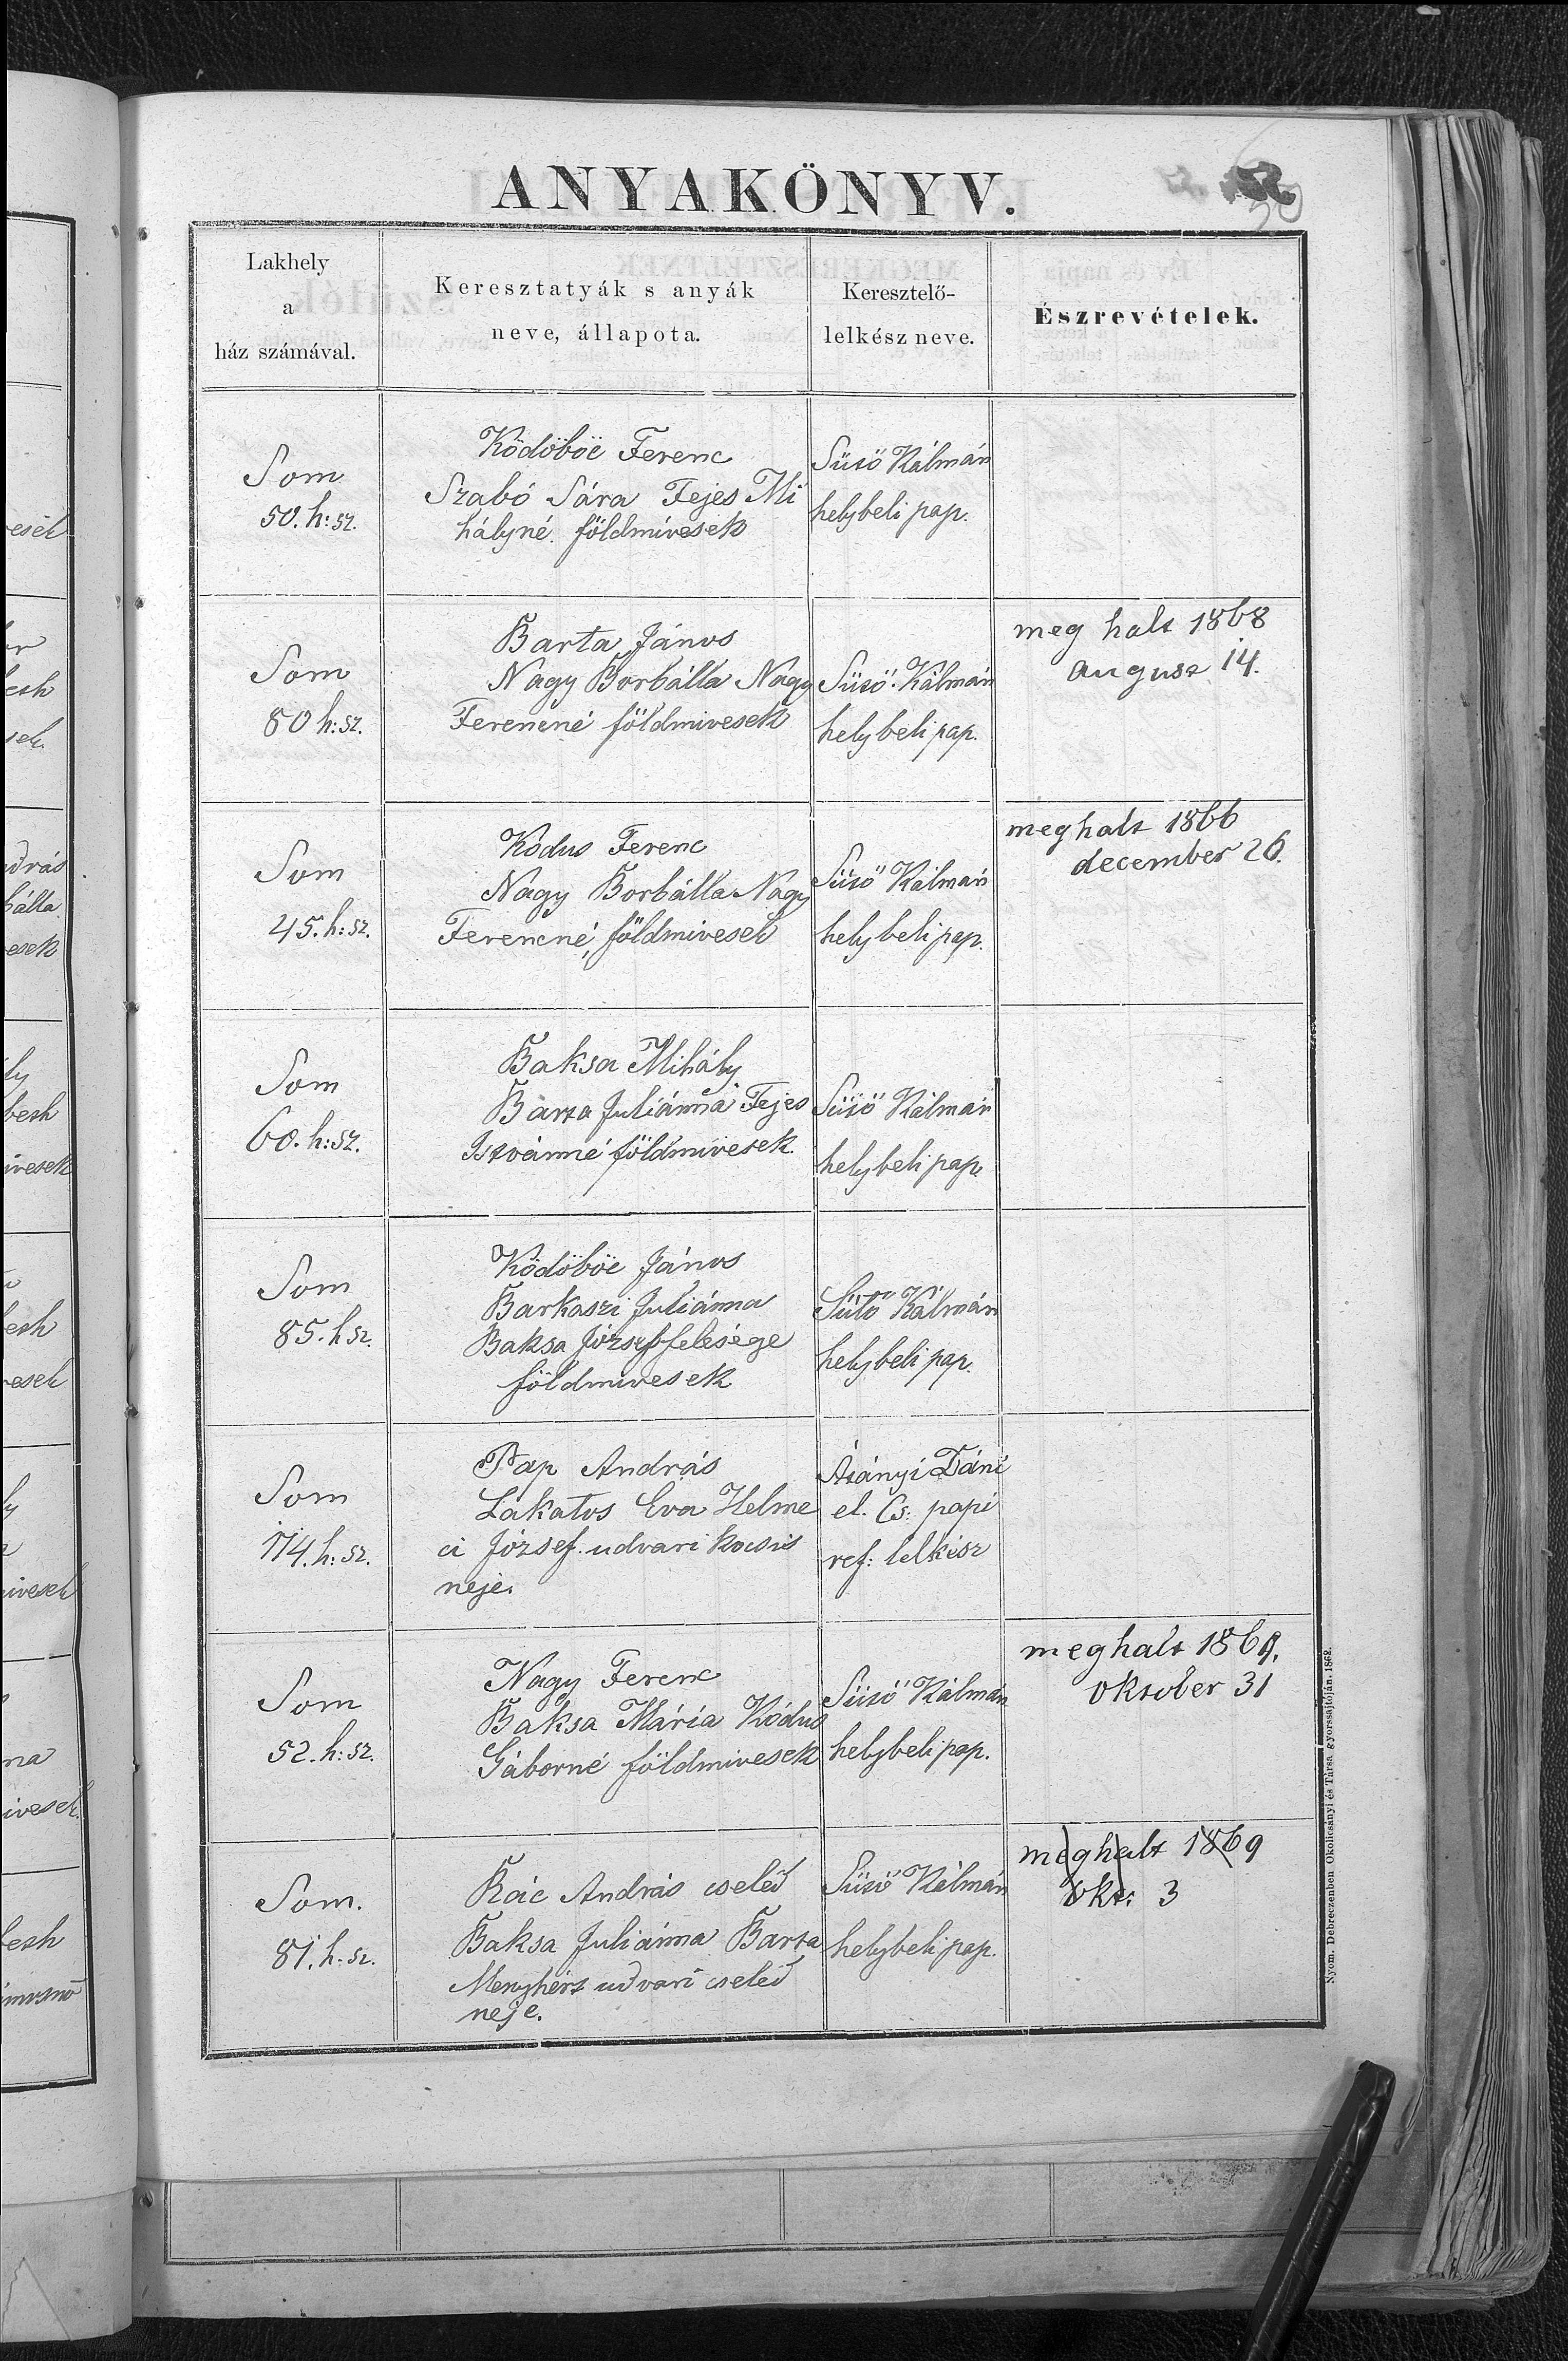 ANYAKÖNYV.
Lakhely
a
ház számával.
Keresztatyák s anyák
neve, állapota.
Keresztelő-
lelkész neve.
Észrevételek.
Som
50. h: sz.
Ködöböe Ferenc
Szabó Sára Fejes Mi
hályné. földmivesek
Sütő Kálmán
helybeli pap.
Som
80 h: sz.
Barta János
Nagy Borbálla Nagy
Ferencné földmivesek
Sütő Kálmán
helybeli pap.
meg halt 1868
august 14.
Som
45. h: sz.
Kódus Ferenc
Nagy Borbálla Nagy
Ferencné, földmivesek
Sütő Kálmán
helybeli pap.
meghalt 1866
december 26.
Som
60. h: sz.
Baksa Mihály
Barta Juliánna Fejes
Istvánné földmivesek.
Sütő Kálmán
helybeli pap.
Som
85. h sz.
Ködöböe János
Barkaszi Juliánna
Baksa József felesége
földmivesek
Sütő Kálmán
helybeli pap.
Som
114. h: sz.
Pap András
Lakatos Eva Helme
ci József udvari kocsis
neje.
el. Cs: papi
ref: lelkész
Som
52. h: sz.
Nagy Ferenc
Baksa Mária Kódus
Gáborné földmivesek
Sütő Kálmán
helybeli pap.
meghalt 1869.
oktober 31
Som.
81. h. sz.
Rác András cseléd
Baksa Juliánna Barta
Menyhért udvari cseléd
neje.
Sütő Kálmán
helybeli pap.
meghalt 1869
okt: 3
Nyom. Debreczenben Okolicsányi és Társa gyorssajtóján. 1868.